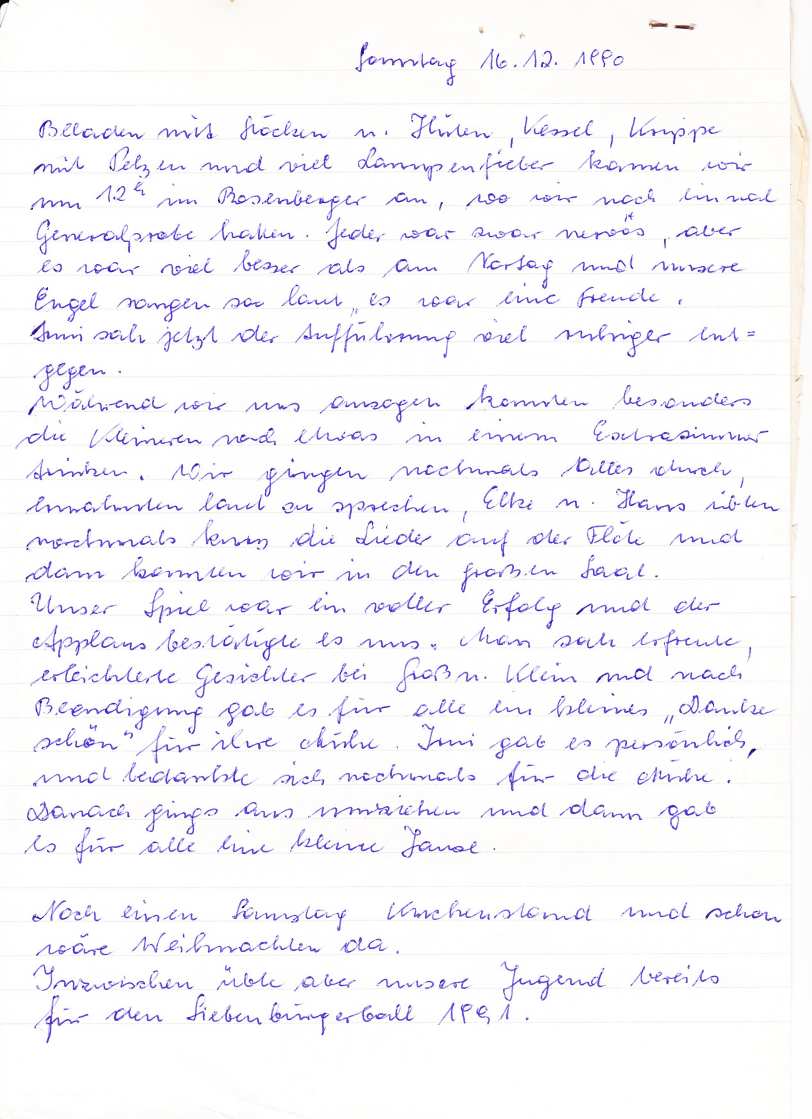 Sonntag 16.12.1990
Beladen mit Stöcken u. Hüten, Kessel, Krippe
mit Pelzen und viel Lampenfieber kamen wir
um 12h im Rosenberger an, wo wir noch einmal
Generalprobe hatten. Jeder war zwar nervös, aber
es war viel besser als am Vortag und unsere
Engel sangen so laut, es war eine Freude.
Inni sah jetzt der Aufführung viel ruhiger ent=
gegen.
Während wir uns anzogen konnten besonders
die Kleineren noch etwas in einem Extrazimmer
trinken. Wir gingen nochmals Alles durch,
ermahnten laut zu sprechen, Elke u. Hans übten
nochmals kurz die Lieder auf der Flöte und
dann konnten wir in den großen Saal.
Unser Spiel war ein voller Erfolg und der
Applaus bestätigte es uns. Man sah erfreute,
erleichterte Gesichter bei Groß u. Klein und nach
Beendigung gab es für alle ein kleines „Danke
schön" für ihre Mühe. Inni gab es persönlich,
und bedankte sich nochmals für die Mühe.
Danach gings ans umziehen und dann gab
es für alle eine kleine Jause.
Noch einen Samstag Kuchenstand und schon
wäre Weihnachten da.
Inzwischen übte aber unsere Jugend bereits
für den Siebenbürgerball 1991.